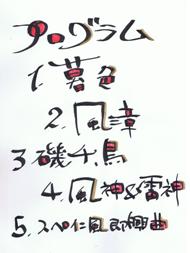 プログラム
1. 暮色
2. 風韋
3 磯千鳥
4. 風神&雷神
5. スペイン風即興曲